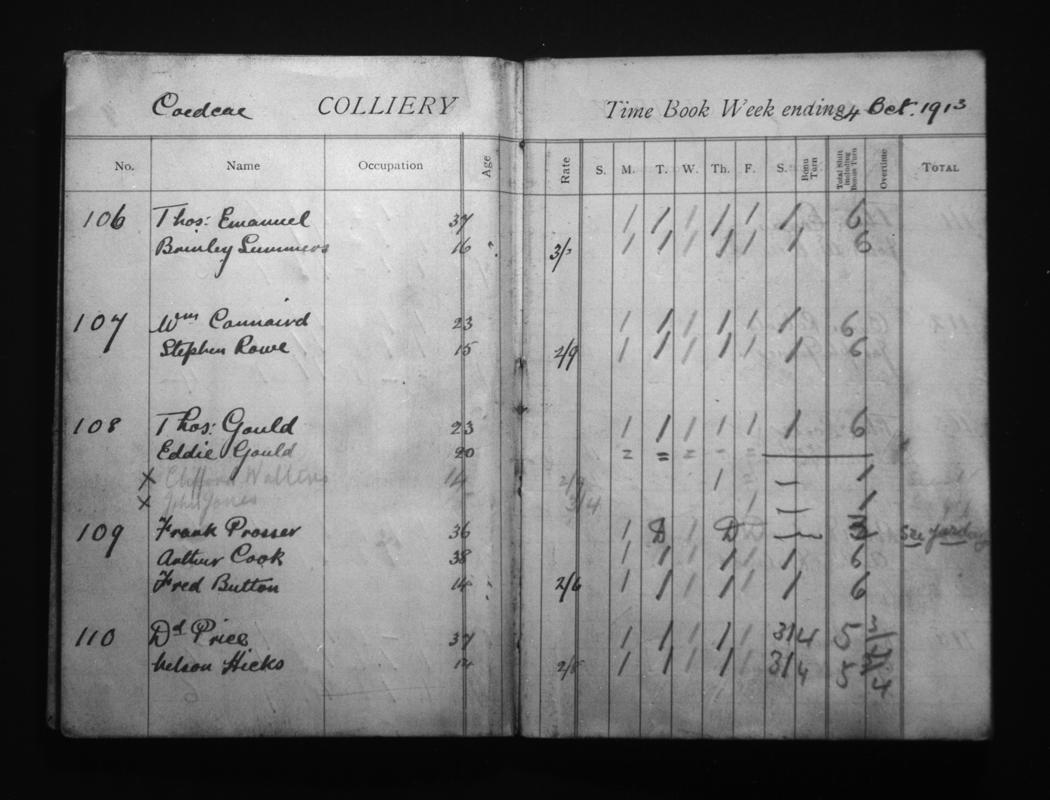 Coedcae COLLIERY Time Book Week ending 4 Oct. 1913
No. Name Occupation Age Rate S. M. T. W. Th. F. S. Bonu Turn Total Shift Including Bonus Turn Overtime TOTAL
106 Thos: Emanuel 37 / / / / / / 6
Bromley Summers 16 3/- / / / / / / 6
107 Wm Connaird 23 / / / / / / 6
Stephen Rowe 15 2/9 / / / / / / 6
108 Thos: Gould 23 / / / / / / 6
Eddie Gould 20 = = = - =
x Clifford Walters 14 / = — 1
x John Jones 3/4 / — 1
109 Frank Prosser 36 / D / D D —
Arthur Cook 38 / / / / / / 6
Fred Button 14 2/6 / / / / / / 6
110 Dd Price 37 / / / / / 3/4 5
Nelson Hicks 14 / / / / / 3/4 5